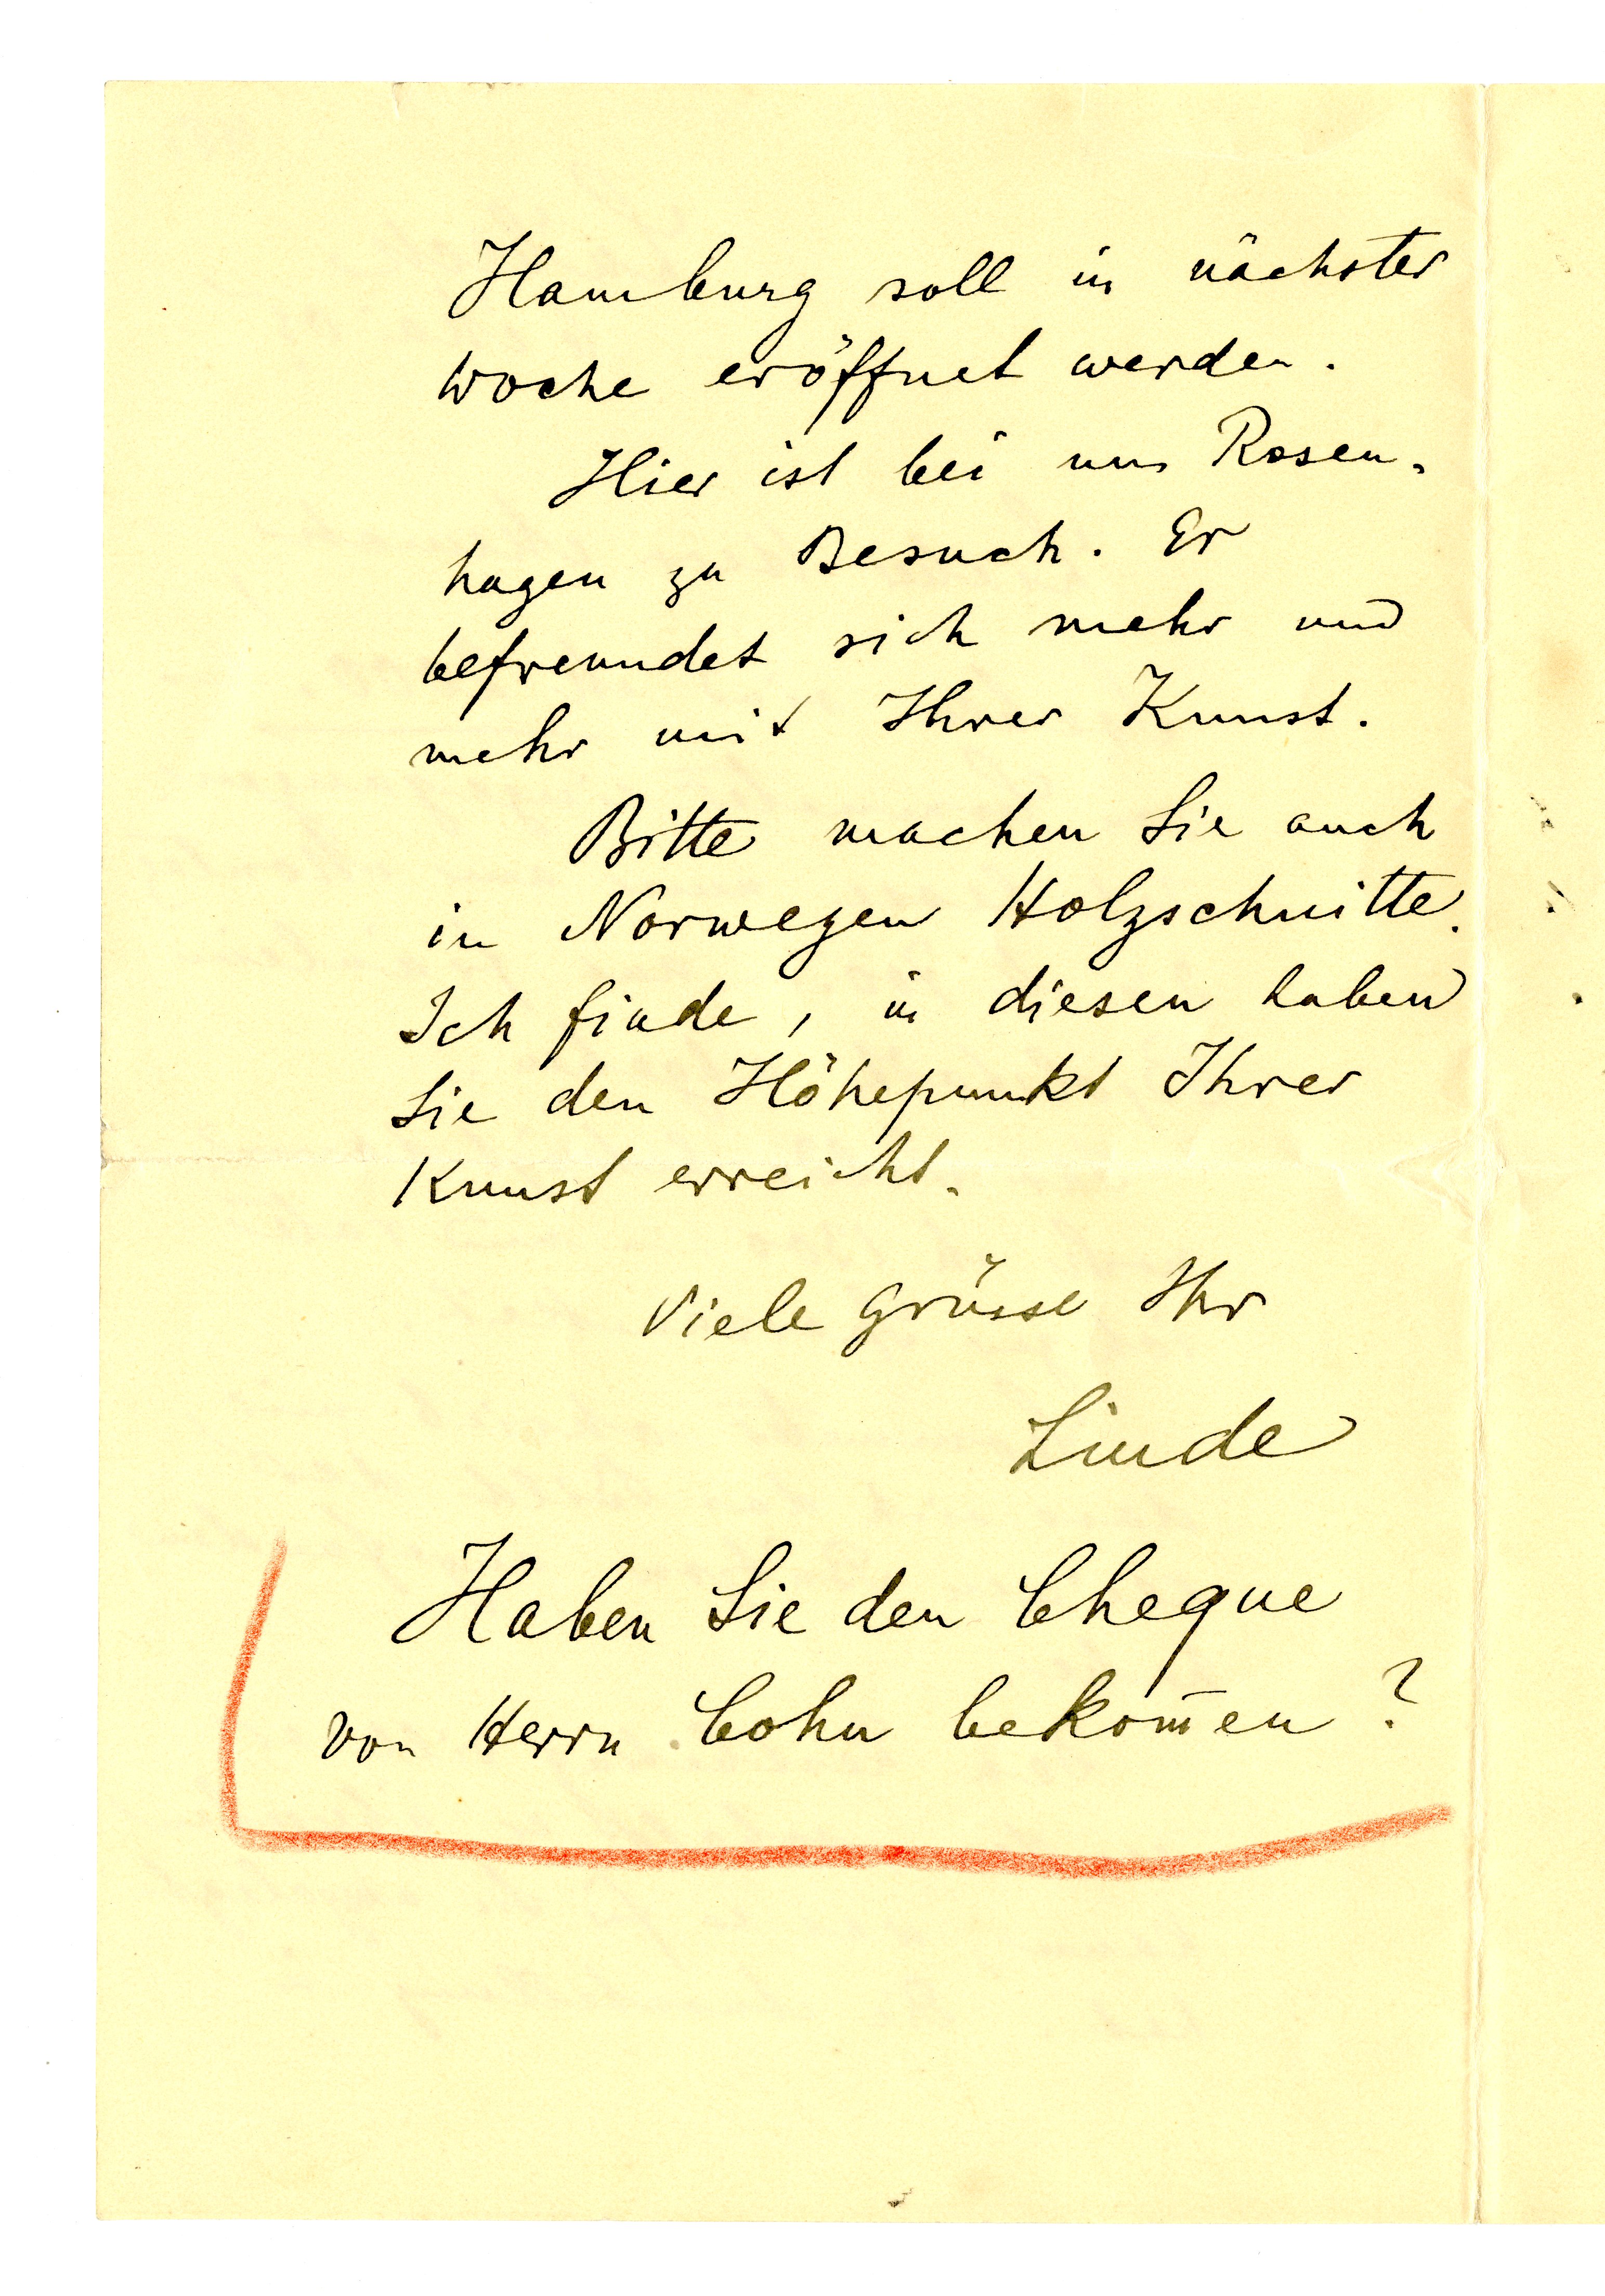 Hamburg soll in nächster
Woche eröffnet werden.
Hier ist bei uns Rosen-
hagen zu Besuch. Er
befreundet sich mehr und
mehr mit Ihrer Kunst.
Bitte machen Sie auch
in Norwegen Holzschnitte.
Ich finde, in diesen haben
Sie den Höhepunkt Ihrer
Kunst erreicht.
Viele Grüsse Ihr
Linde
Haben Sie den Cheque
von Herrn Cohn bekom̅en?